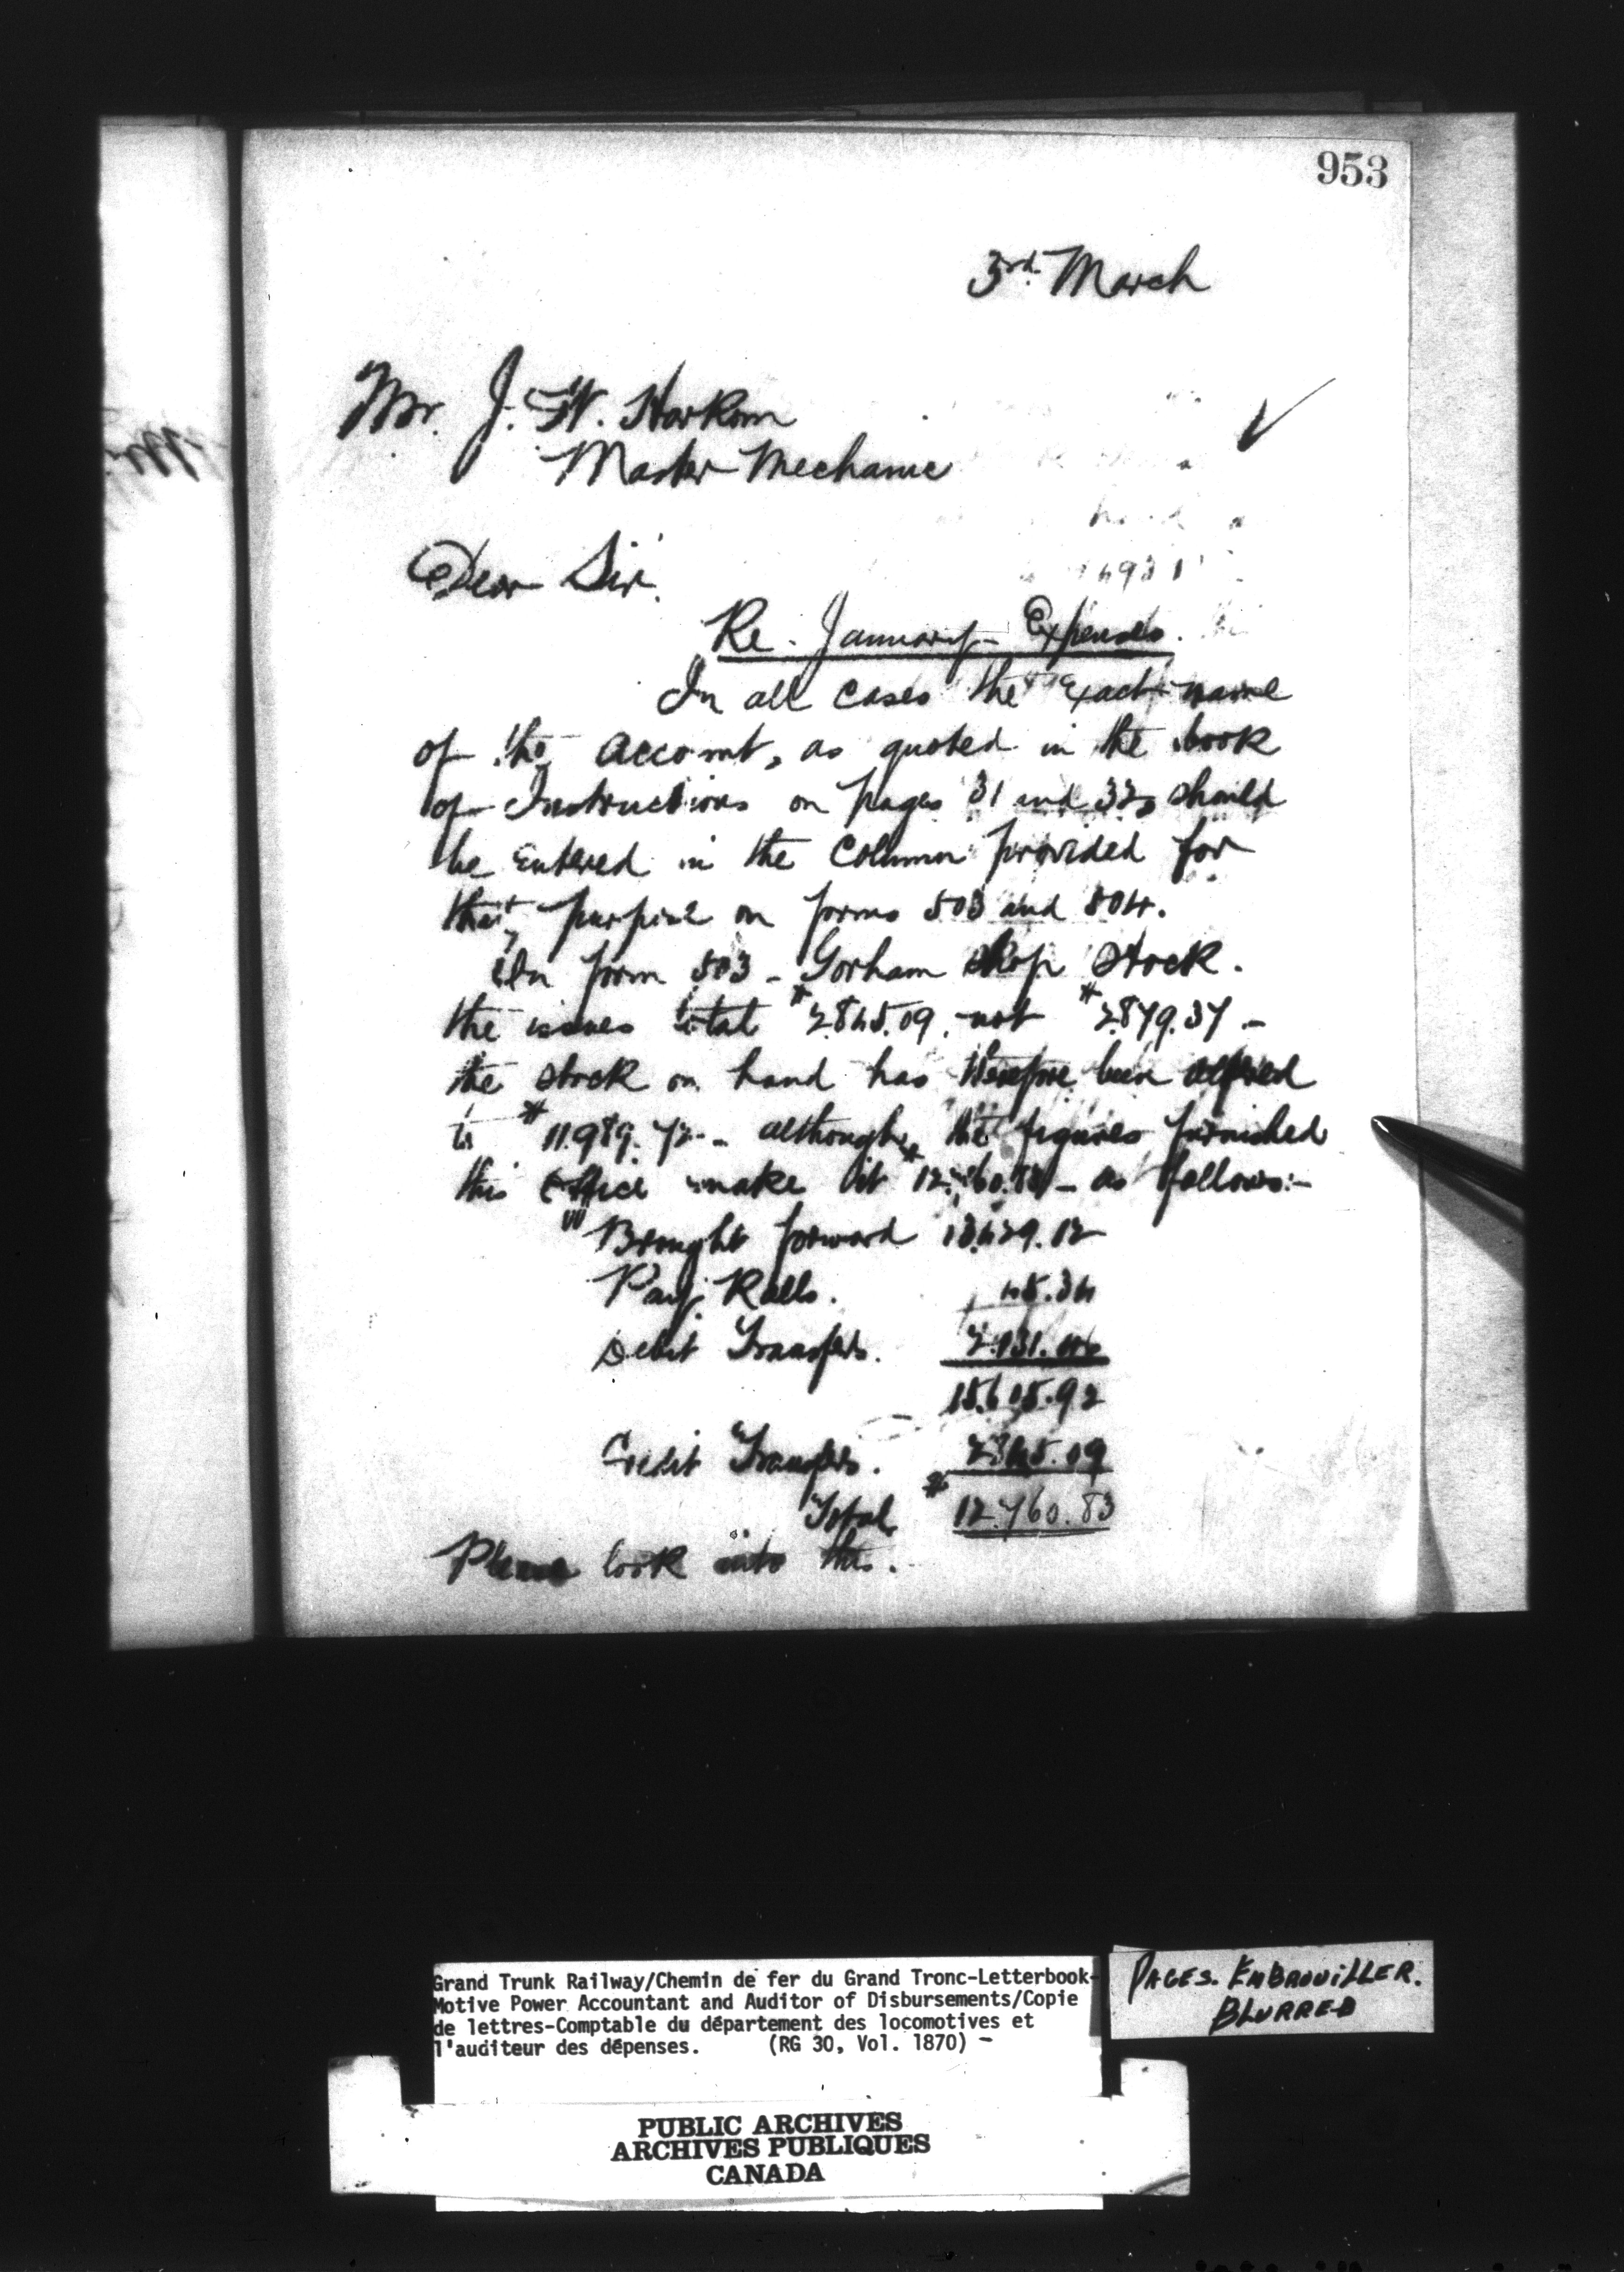 953
3rd. March
Mr. J. W. Harkom
Master Mechanic
Dear Sir.
Re. January Expenses.
In all cases the exact name
of the Account, as quoted in the book
of Instructions on pages 31 and 32, should
be entered in the Column provided for
that purpose on forms 503 and 504.
In form 503 - Gorham shop Stock.
the issues total $2845.09. not $2.879.37 -
the stock on hand has therefore been altered
to $11.989.72 - although the figures furnished
this office make it $12.760.83 - as follows:-
" Brought forward 13.429.12
Pay Rolls. 45.34
Debit Transfers. 2.131.46
15.605.92
Credit Transfers. 2845.09
Total $12.760.83
Please look into this.
Grand Trunk Railway/Chemin de fer du Grand Tronc-Letterbook-
Motive Power Accountant and Auditor of Disbursements/Copie
de lettres-Comptable du département des locomotives et
l'auditeur des dépenses. (RG 30, Vol. 1870) -
PAGES. EMBROUILLER.
BLURRED
PUBLIC ARCHIVES
ARCHIVES PUBLIQUES
CANADA